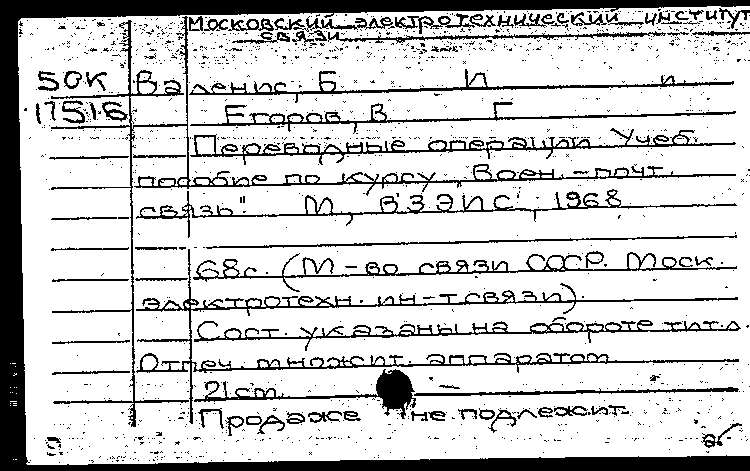 Московский электротехнический институт
связи
50К Валенис, Б И и
11516 Егоров, В Г
Переводные операции Учеб.
пособие по курсу „Воен.-почт.
связь" М, ВЗЭИС, 1968
68с. (М-во связи СССР. Моск.
электротехн. ин-т связи).
Сост. указаны на обороте тит.л.
Отпеч. множит. аппаратом
21 cm
Продаже не подлежит.